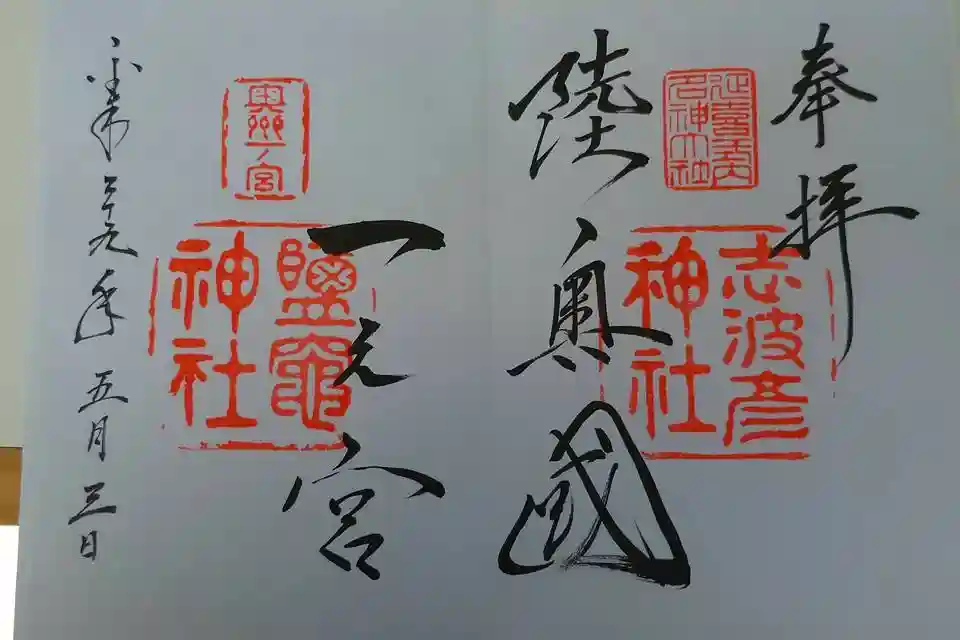 奉拝
延喜式内
名神大社
志波彦
神社
陸奥國
一之宮
奥州一ノ宮
鹽竈
神社
平成二十九年五月三日